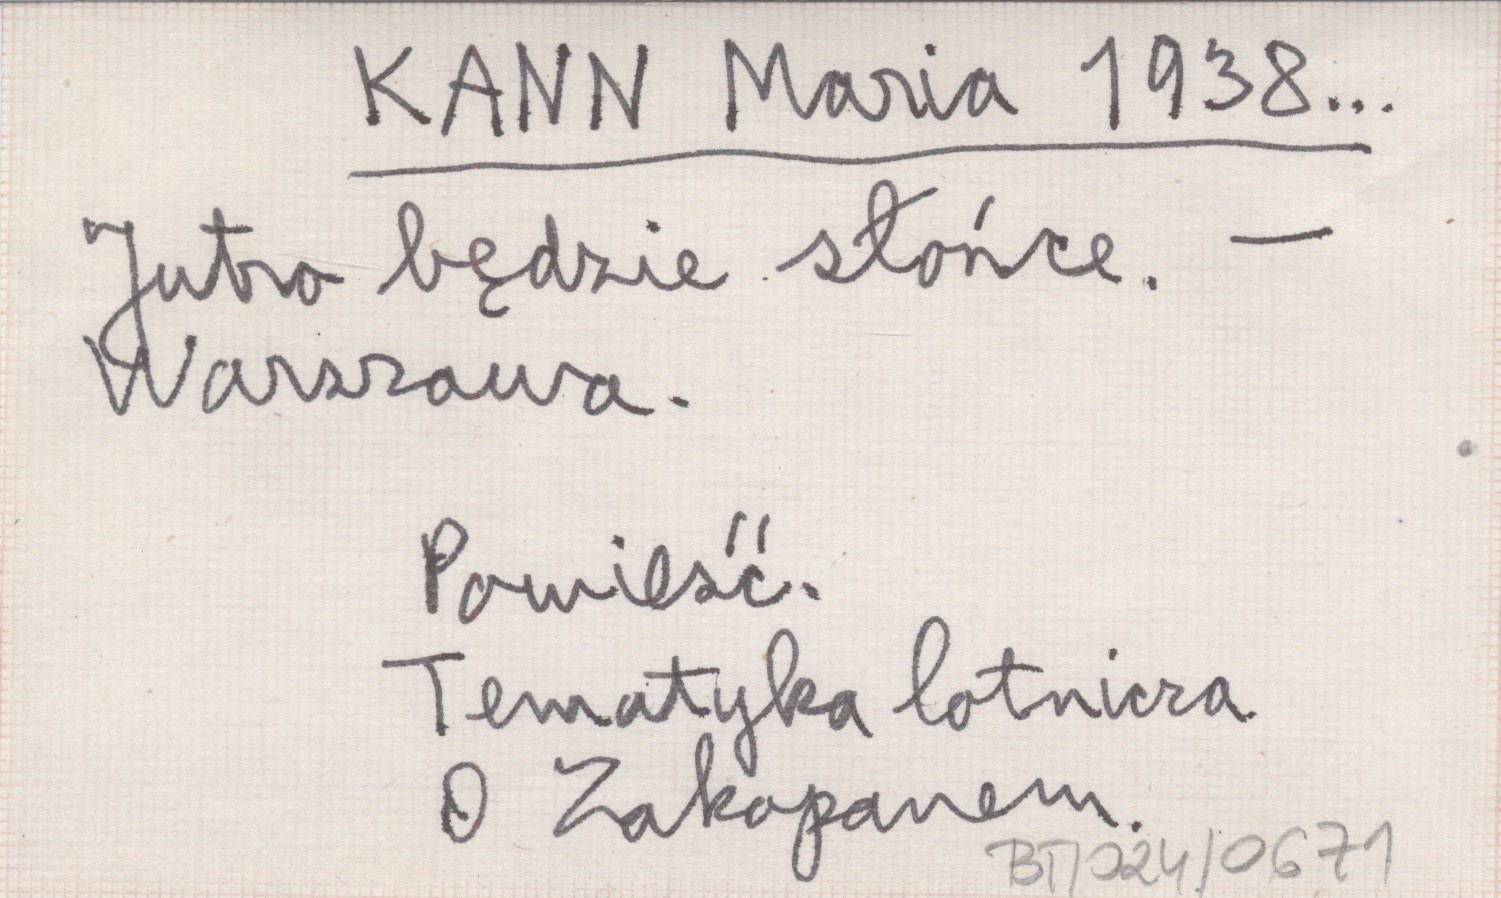 KANN Maria 1938...
Jutro będzie słońce. —
Warszawa.
Powieść.
Tematyka lotnicza
O Zakopanem.
/0671